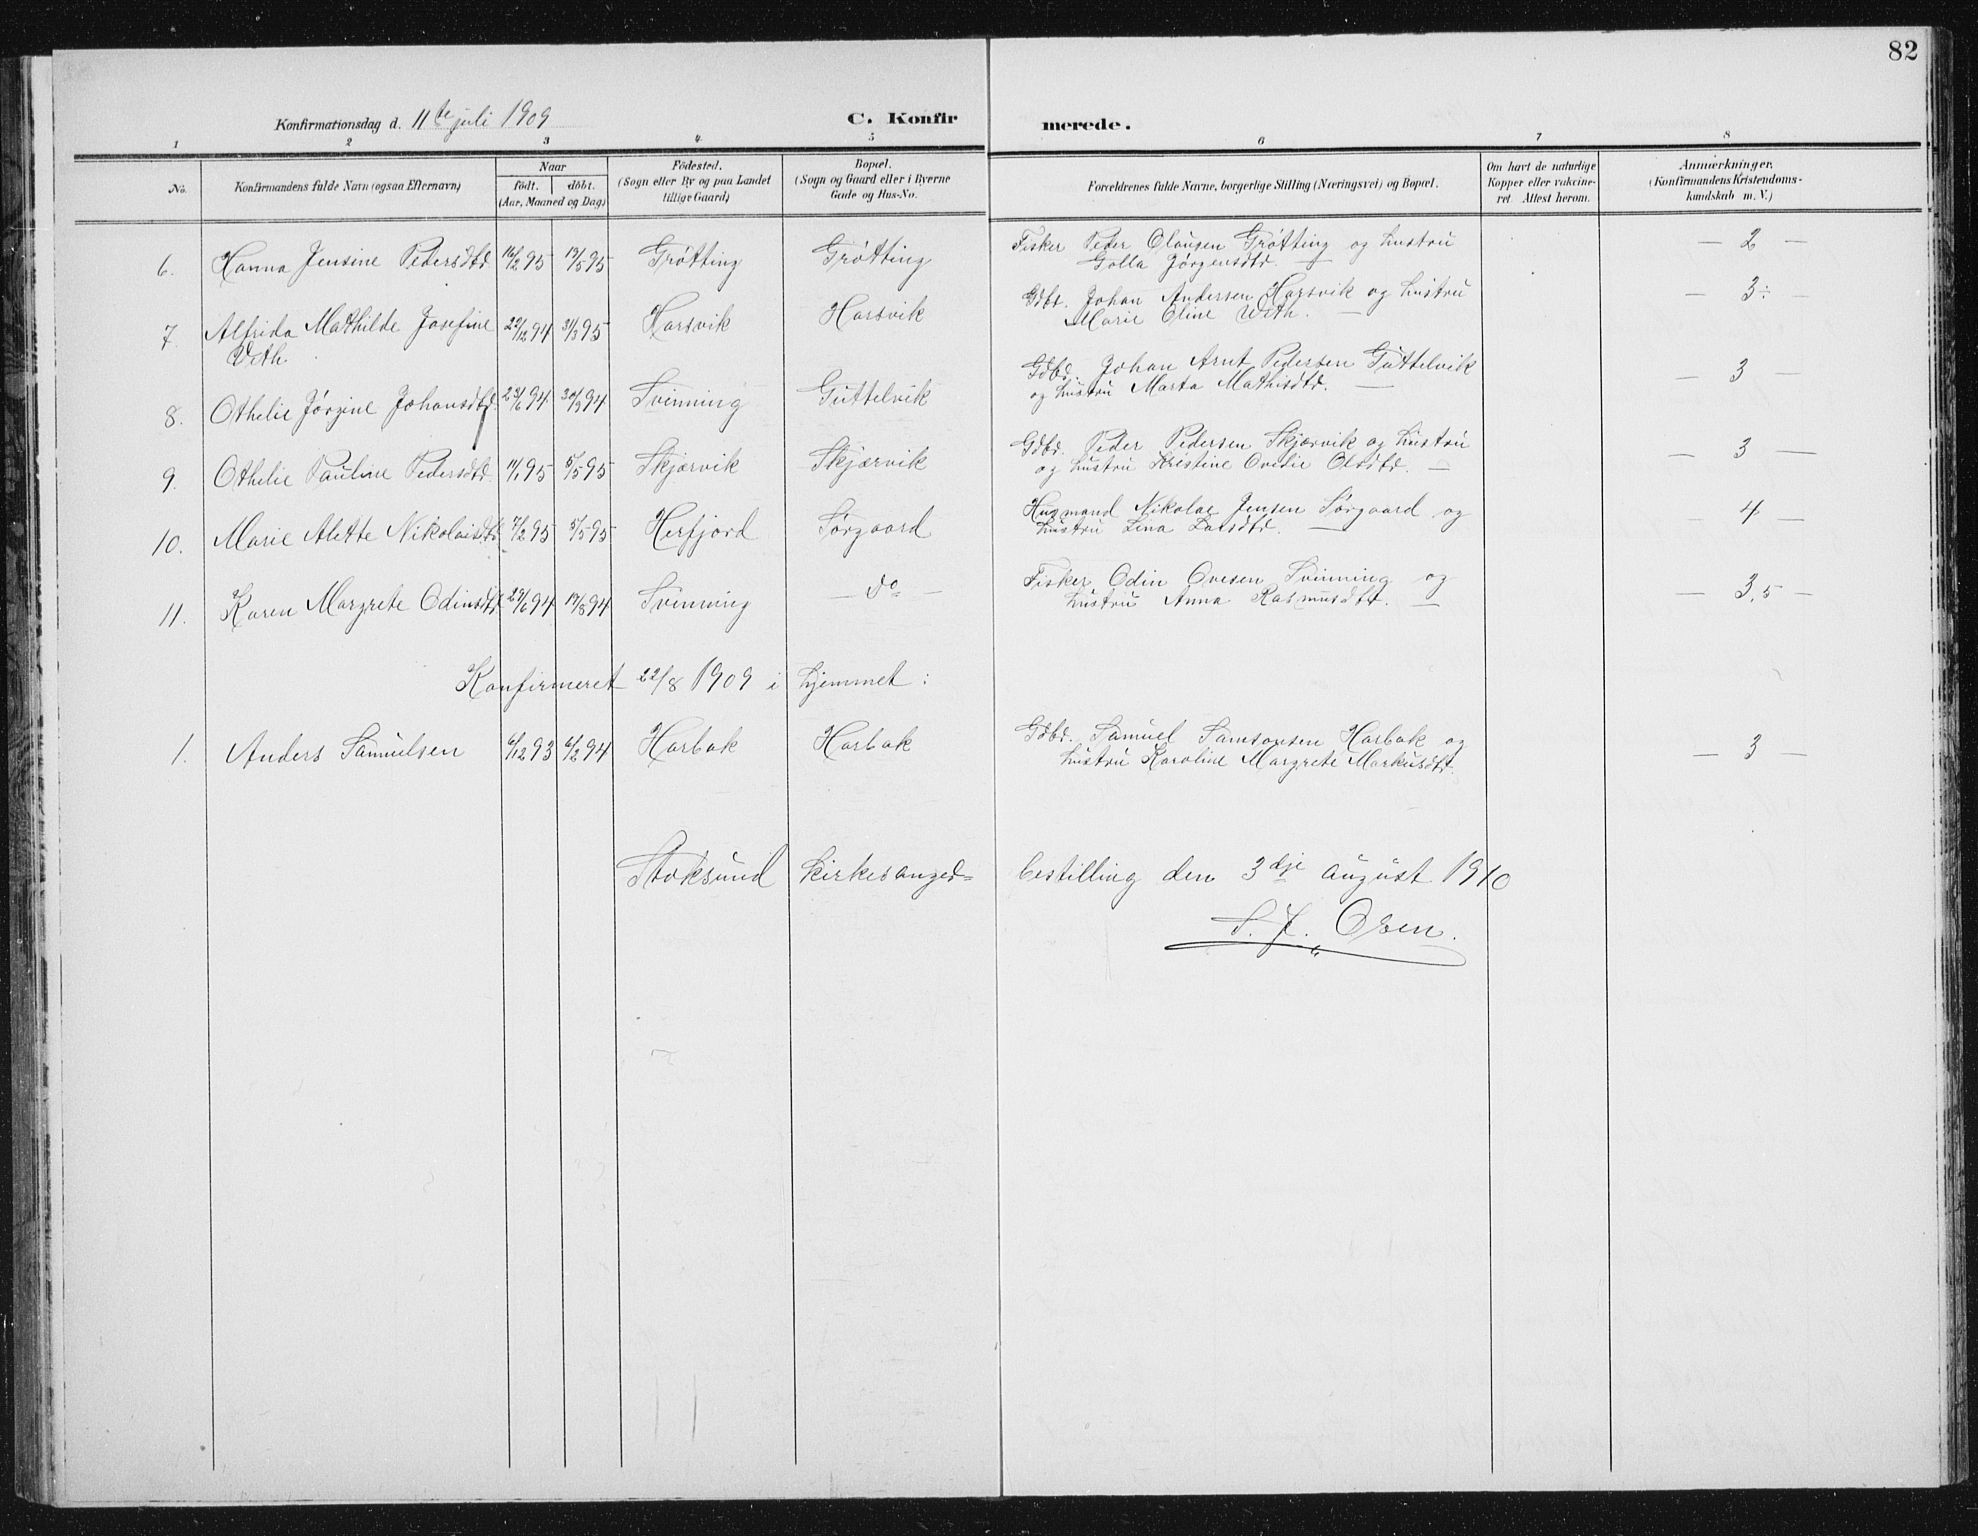 82
Konfirmationsdag d. 11te juli 1909
C. Konfirmerede.
1 2 3 4 5 6 7 8
No.
Konfirmandens fulde Navn (ogsaa Efternavn)
Naar
født. døbt.
(Aar, Maaned og Dag)
Fødested.
(Sogn eller By og paa Landet
tillige Gaard)
Bopæl.
(Sogn og Gaard eller i Byerne
Gade og Hus-No.
Forældrenes fulde Navne, borgerlige Stilling (Næringsvei) og Bopæl.
Om havt de naturlige
Kopper eller vakcine-
ret. Attest herom.
Anmærkninger.
(Konfirmandens Kristendoms-
kundskab m. V.)
6. Hanna Jensine Pedersdtr. 16/2 95 19/5 95 Grøtting Grøtting Fisker Peder Olausen Grøtting og hustru — 2 —
Golla Jørgensdtr. —
7. Alfrida Mathilde Josefine 22/12 94 31/3 95 Harsvik Harsvik Gdbr. Johan Andersen Harsvik og hustru — 3÷ —
Vith Marie Oline Vith. —
8. Othelie Jørgine Johansdtr. 23/6 94 30/9 94 Svenning Guttelvik Gdbr. Johan Arnt Pedersen Guttelvik — 3 —
og hustru Marta Mathisdtr. —
9. Othelie Pauline Pedersdtr. 11/1 95 5/5 95 Skjærvik Skjærvik Gdbr. Peder Pedersen Skjærvik og hustru — 3 —
og hustru Kristine Ovedie Olsdtr. —
10. Marie Alette Nikolaisdtr 7/2 95 5/5 95 Herfjord Sørgaard Husmand Nikolai Jensen Sørgaard og — 4 —
hustru Lina Larsdtr. —
11. Karen Margrete Odinsdtr 29/6 94 19/8 94 Svenning — do — Fisker Odin Ovesen Svenning og — 3,5 —
hustru Anna Rasmusdtr. —
Konfirmeret 22/8 1909 i hjemmet:
1. Anders Samuelsen 6/12 93 6/2 94 Harbak Harbak Gdbr. Samuel Samsonsen Harbak og — 3 —
hustru Karoline Margrete Markusdtr.
Stoksund kirkesanger= bestilling den 3dje august 1910
S. J. Osen.